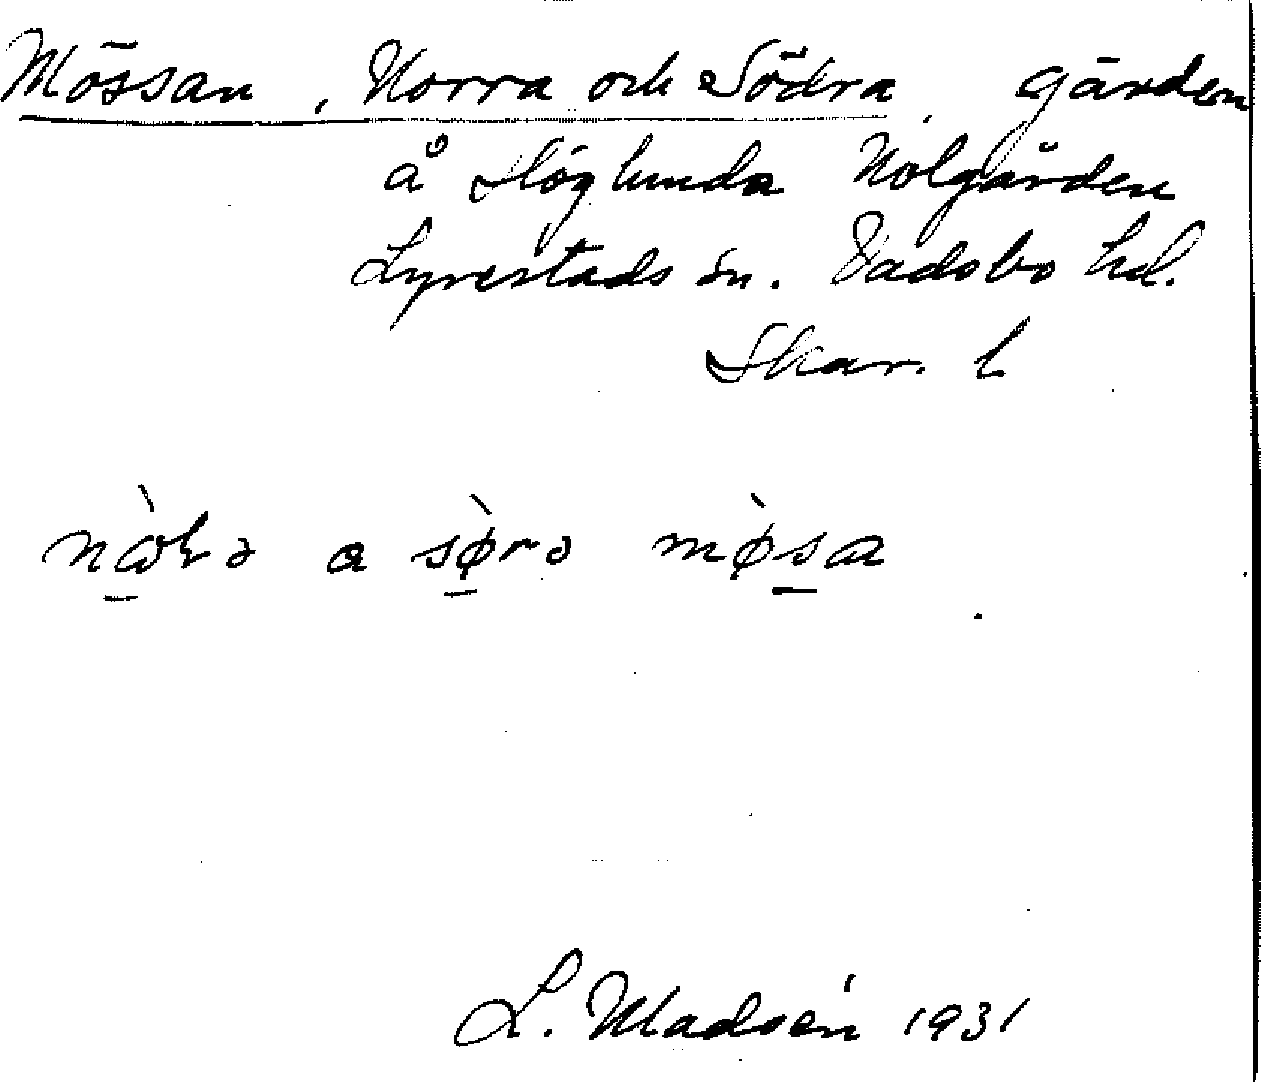 Mössan, Norra och Södra, gärden
å Höglunda Nolgården
Lyrestads sn. Vadsbo hd.
Skar. l
a sø̀rə mø̀sa
L. Madsén 1931